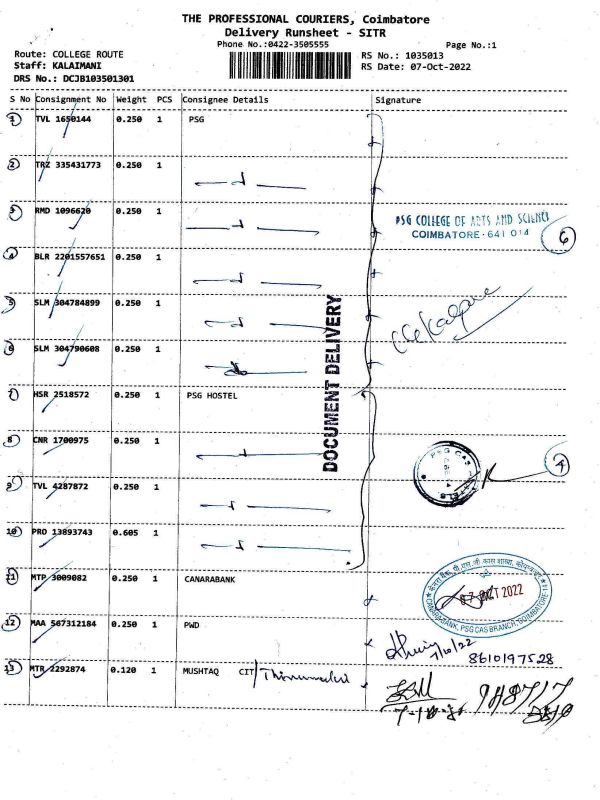 THE PROFESSIONAL COURIERS, Coimbatore
Delivery Runsheet - SITR
Phone No.:0422-3505555
Page No.:1
Route: COLLEGE ROUTE
RS No.: 1035013
Staff: KALAIMANI
RS Date: 07-Oct-2022
DRS No.: DCJB103501301
S No Consignment No Weight PCS Consignee Details Signature
1 TVL 1650144 0.250 1 PSG
2 TRZ 335431773 0.250 1
3 RMD 1096620 0.250 1
PSG COLLEGE OF ARTS AND SCIENCE
COIMBATORE - 641 014
6
4 BLR 2201557651 0.250 1
5 SLM 304784899 0.250 1
6 SLM 304790608 0.250 1
DOCUMENT DELIVERY
7 HSR 2518572 0.250 1 PSG HOSTEL
8 CNR 1700975 0.250 1
PSG CAS
4
9 TVL 4287872 0.250 1
10 PRO 13893743 0.605 1
11 MTP 3009082 0.250 1 CANARABANK
07 OCT 2022
CANARA BANK, PSG CAS BRANCH, COIMBATORE-
12 MAA 567312184 0.250 1 PWD
7/10/22
8610197528
13 MTR 2292874 0.120 1 MUSHTAQ CIT/